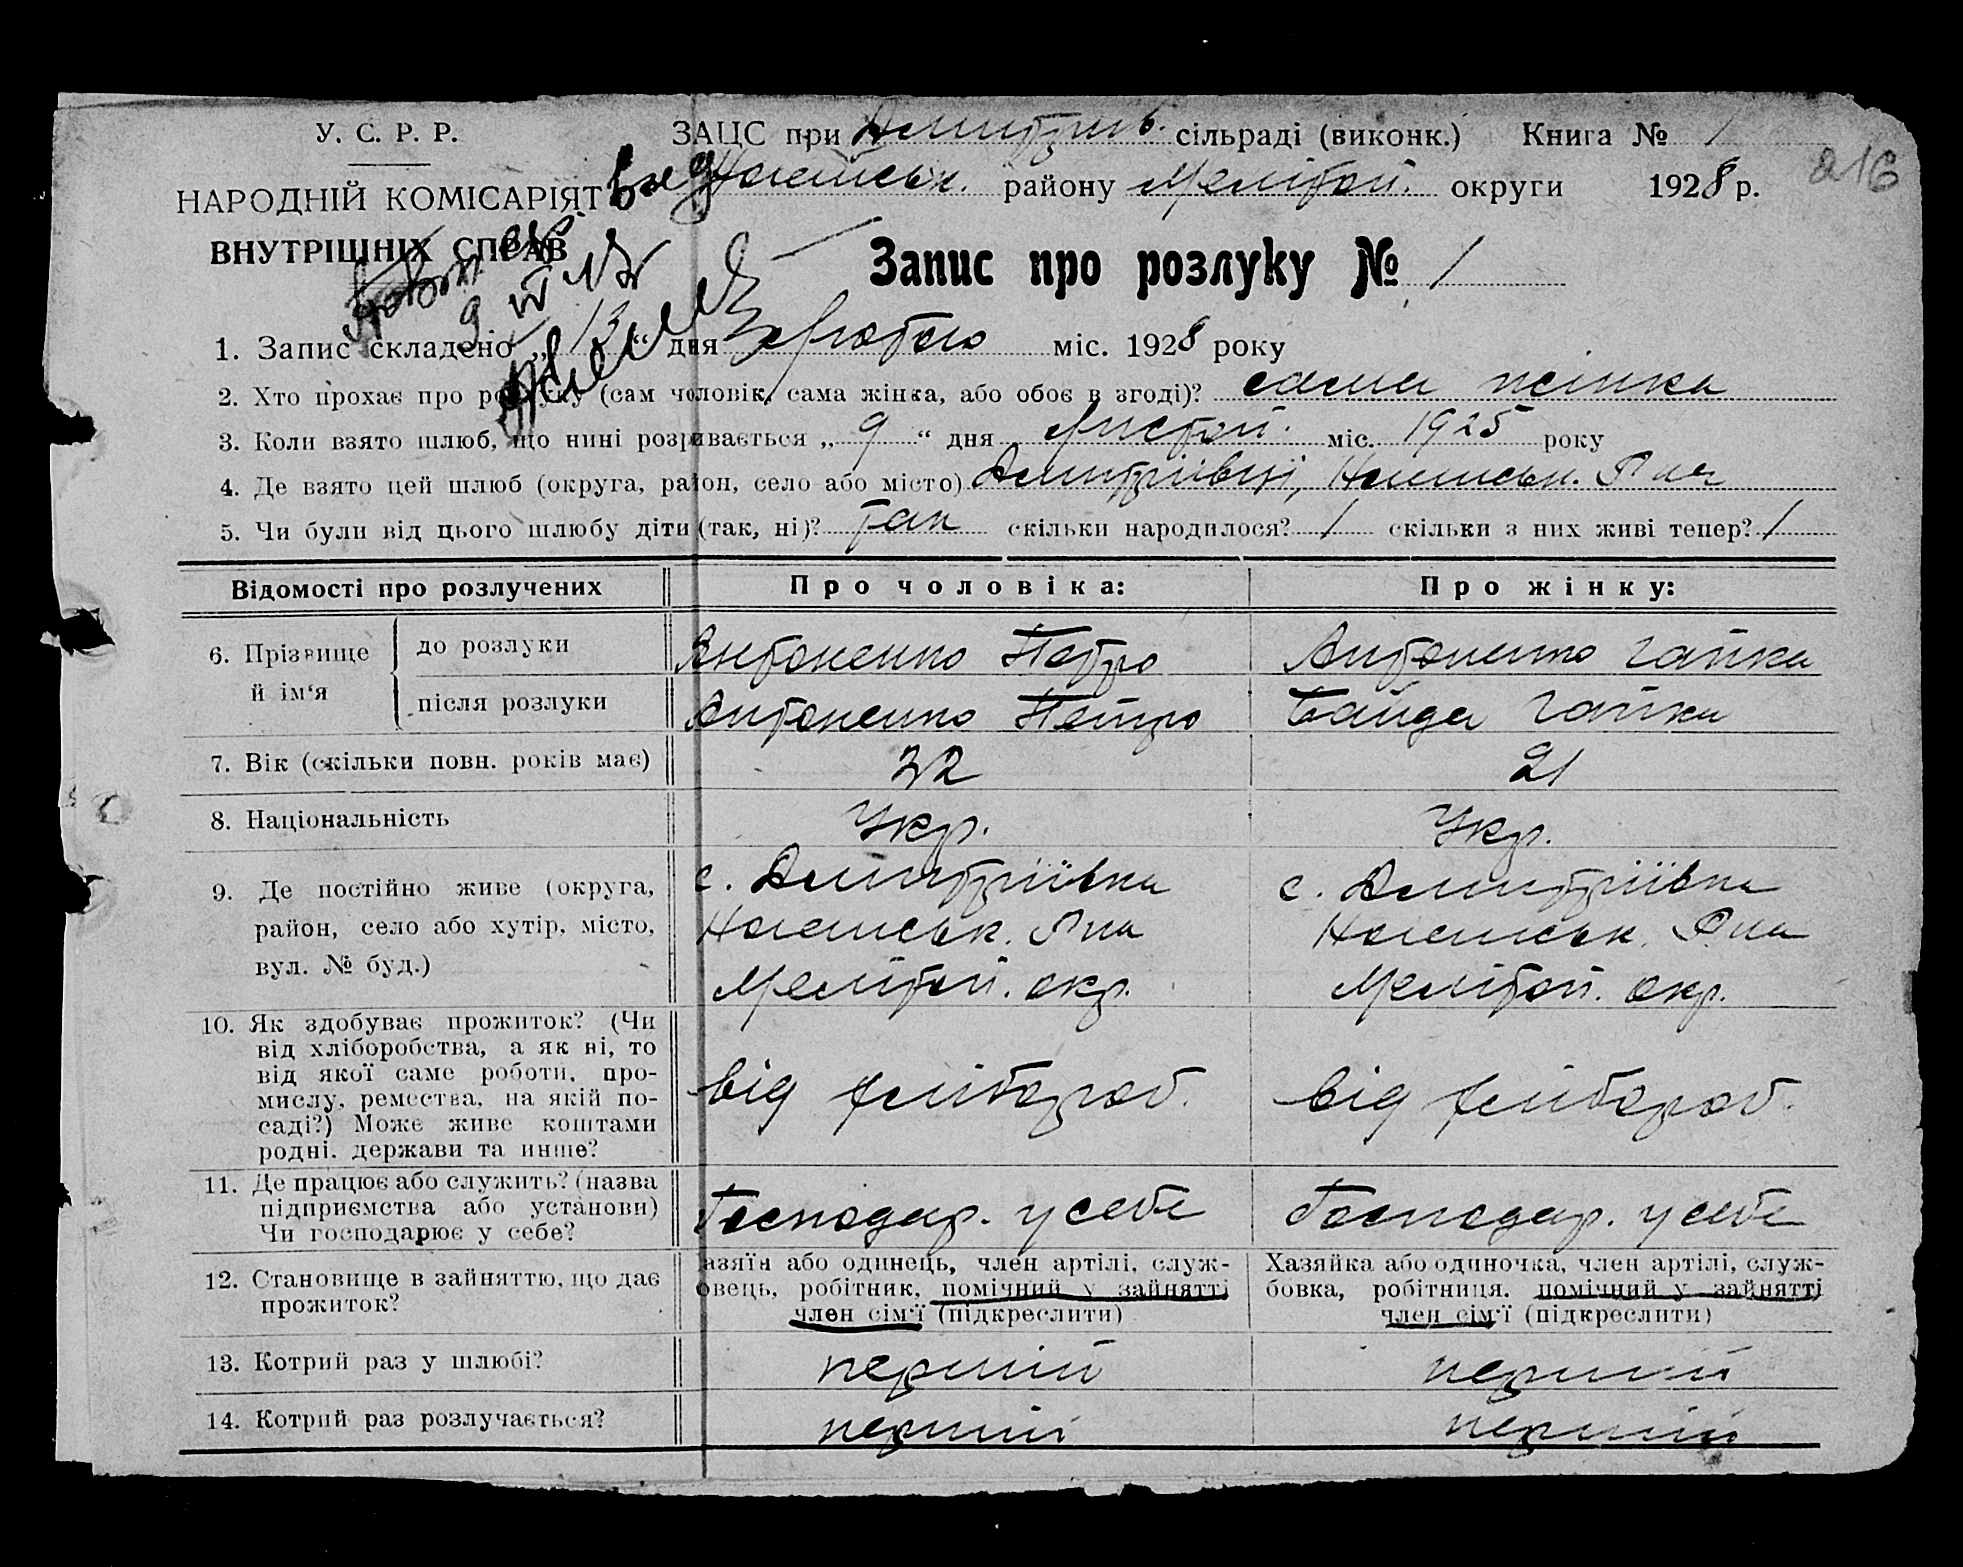 У. С. Р. Р.
ЗАЦС при Дмитрів. сільраді (виконк.) Книга № 1
216
НАРОДНІЙ КОМІСАРІЯТ
Ногайськ. району Мелітоп. округи 1928 р.
ВНУТРІШНІХ СПРАВ
Запис про розлуку № 1
1. Запис складено „ 13 “ дня міс. 1928 року
2. Хто прохає про розлуку (сам чоловік, сама жінка, або обоє в згоді)? сама жінка
3. Коли взято шлюб, що нині розривається „ 9 “ дня Листоп. міс. 1925 року
4. Де взято цей шлюб (округа, район, село або місто) Дмитріївці, Ногайськ. Р на
5. Чи були від цього шлюбу діти (так, ні)? так скільки народилося? 1 скільки з них живі тепер? 1
Відомості про розлучених
Про чоловіка:
Про жінку:
6. Прізвище й ім‘я
до розлуки
Антоненко Петро
Антоненко Гапка
після розлуки
Антоненко Петро
Байда Гапка
7. Вік (скільки повн. років має)
22
21
8. Національність
Укр.
Укр.
9. Де постійно живе (округа,
район, село або хутір, місто,
вул. № буд.)
с. Дмитріївка
Ногайськ. Р на
Мелітоп. окр.
с. Дмитріївка
Ногайськ. Р на
Мелітоп. окр.
10. Як здобуває прожиток? (Чи
від хліборобства, а як ні, то
від якої саме роботи, про-
мислу, ремества, на якій по-
саді?) Може живе коштами
родні, держави та инше?
від хлібороб.
від хлібороб.
11. Де працює або служить? (назва
підприємства або установи)
Чи господарює у себе?
Господар. у себе
Господар. у себе
12. Становище в зайняттю, що дає
прожиток?
азяїн або одинець, член артілі, служ-
овець, робітник, помічний у зайнятті
член сім‘ї (підкреслити)
Хазяйка або одиночка, член артілі, служ-
бовка, робітниця, помічний у зайнятті
член сім‘ї (підкреслити)
13. Котрий раз у шлюбі?
перший
перший
14. Котрий раз розлучається?
перший
перший